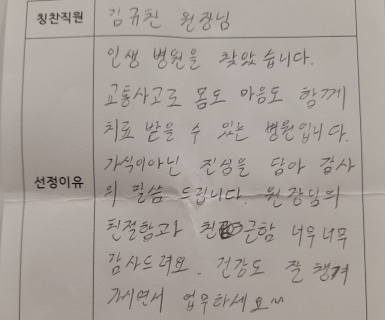 칭찬직원
김규친 원장님
선정이유
인생 병원을 찾았습니다.
교통사고로 몸도 마음도 함께
치료 받을 수 있는 병원입니다.
가식이아닌 진심을 담아 감사
의 말씀 드립니다. 원장님의
친절함과 친근함 너무너무
감사드려요. 건강도 잘 챙겨
가시면서 업무하세요^^